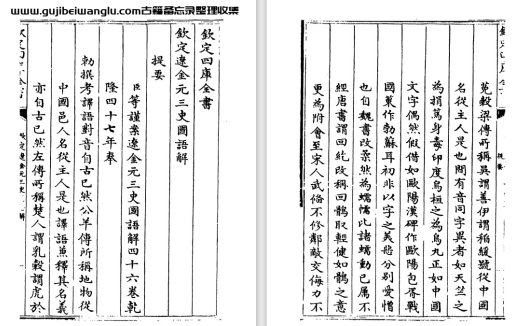 www.gujibeiwanglu.com古籍备忘录整理收集
欽定四庫全書
欽定遼金元三史國語解
提要
臣等謹案遼金元三史國語解四十六卷乾
隆四十七年奉
勅撰考譯語對音自古已然公羊傳所稱地物從
中國邑人名從主人是也譯語兼釋其名義
亦自古已然左傳所稱楚人謂乳穀謂虎於
菟穀梁傳所稱吳謂善伊謂稻緩號從中國
名從主人是也間有音同字異者如天竺之
為捐篤身毒印度烏桓之為烏丸正如中國
文字偶然假借如歐陽漢碑作歐陽包胥戰
國策作勃蘇耳初非以字之美惡分別愛憎
也自魏書改柔然為蠕蠕比諸蠕動已屬不
經唐書謂回紇改稱回鶻取輕健如鶻之意
更為附會至宋人武備不修鄰敵交侮力不